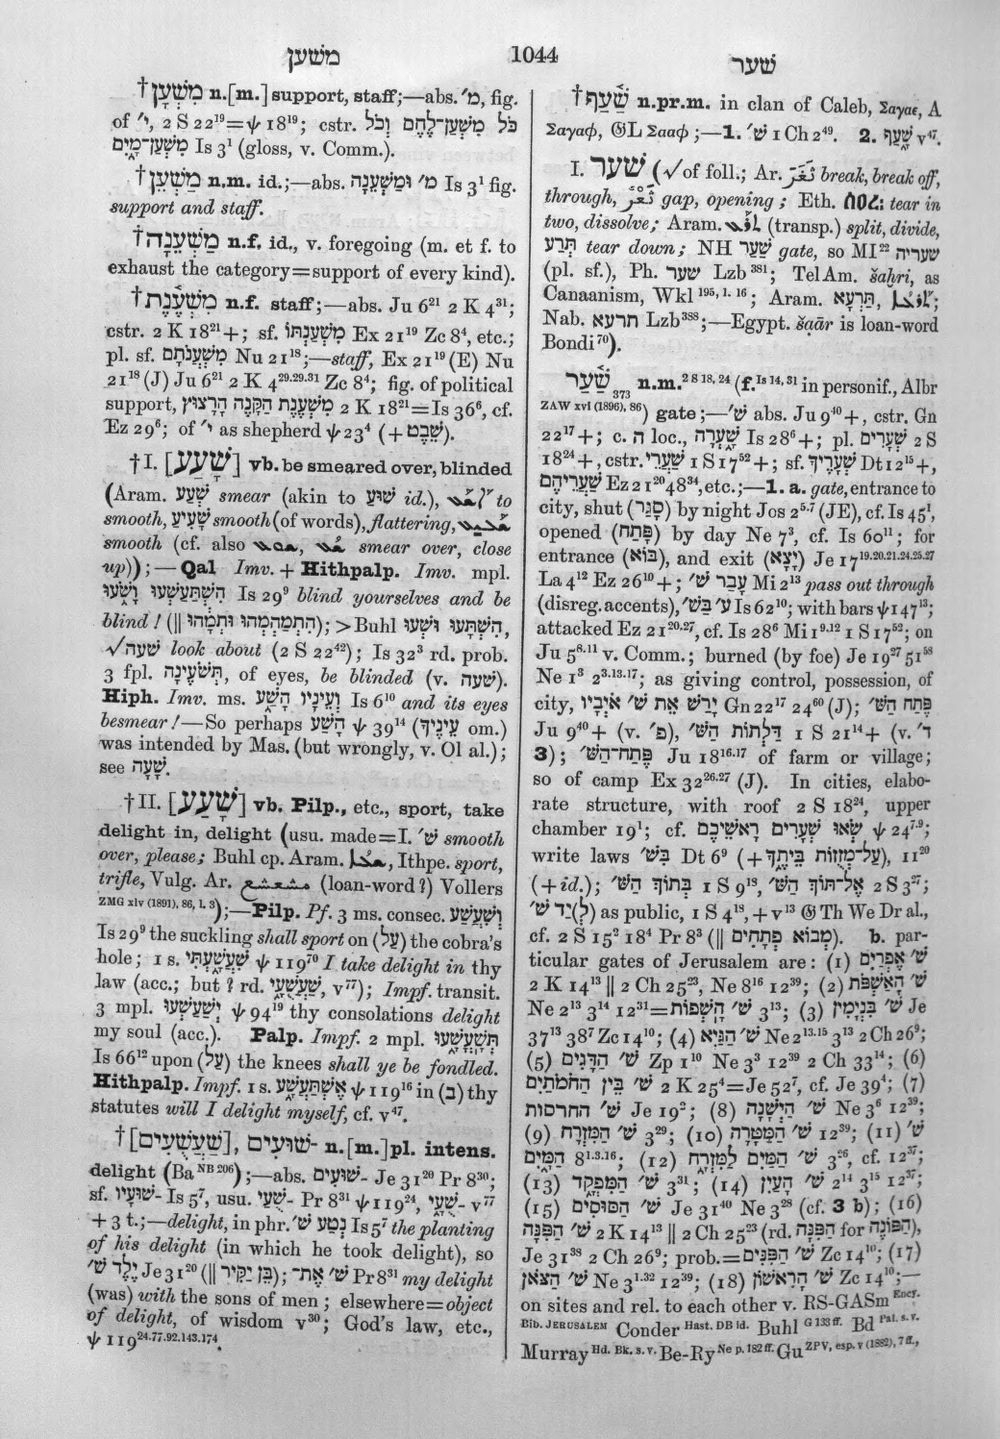 משען
1044
שער
†מִשְׁעָן n.[m.] support, staff;—abs. מ׳, fig.
of י׳, 2 S 22¹⁹=ψ 18¹⁹; cstr. כֹּל מִשְׁעַן־לֶחֶם וְכֹל
מִשְׁעַן־מָיִם Is 3¹ (gloss, v. Comm.).
†מַשְׁעֵן n.m. id.;—abs. מ׳ וּמַשְׁעֵנָה Is 3¹ fig.
support and staff.
†מַשְׁעֵנָה n.f. id., v. foregoing (m. et f. to
exhaust the category=support of every kind).
†מִשְׁעֶנֶת n.f. staff;—abs. Ju 6²¹ 2 K 4³¹;
cstr. 2 K 18²¹+; sf. מִשְׁעַנְתּוֹ Ex 21¹⁹ Zc 8⁴, etc.;
pl. sf. מִשְׁעֲנֹתָם Nu 21¹⁸;—staff, Ex 21¹⁹ (E) Nu
21¹⁸ (J) Ju 6²¹ 2 K 4²⁹·²⁹·³¹ Zc 8⁴; fig. of political
support, מִשְׁעֶנֶת הַקָּנֶה הָרָצוּץ 2 K 18²¹=Is 36⁶, cf.
Ez 29⁶; of י׳ as shepherd ψ 23⁴ (+שֵׁבֶט).
†I. [שָׁעַע] vb. be smeared over, blinded
(Aram. שְׁעַע smear (akin to שׁוּעַ id.), to
smooth, שְׁעִיעַ smooth (of words), flattering,
smooth (cf. also smear over, close
up));—Qal Imv. + Hithpalp. Imv. mpl.
הִשְׁתַּעַשְׁעוּ וָשֹׁעוּ Is 29⁹ blind yourselves and be
blind! (‖ הִתְמַהְמְהוּ וּתְמָהוּ); >Buhl הִשְׁתָּעוּ וּשְׁעוּ,
√שׁעה look about (2 S 22⁴²); Is 32³ rd. prob.
3 fpl. תְּשֹׁעֶינָה, of eyes, be blinded (v. שׁעה).
Hiph. Imv. ms. וְעֵינָיו הָשַׁע Is 6¹⁰ and its eyes
besmear!—So perhaps הָשַׁע ψ 39¹⁴ (עֵינֶיךָ om.)
was intended by Mas. (but wrongly, v. Ol al.);
see שָׁעָה.
†II. [שָׁעַע] vb. Pilp., etc., sport, take
delight in, delight (usu. made=I. שׁ׳ smooth
over, please; Buhl cp. Aram. , Ithpe. sport,
trifle, Vulg. Ar. مشعشع (loan-word?) Vollers
ZMG xlv (1891), 86, l. 3);—Pilp. Pf. 3 ms. consec. וְשִׁעֲשַׁע
Is 29⁹ the suckling shall sport on (עַל) the cobra's
hole; 1 s. שִׁעֲשַׁעְתִּי ψ 119⁷⁰ I take delight in thy
law (acc.; but ? rd. שַׁעֲשֻׁעַי, v⁷⁷); Impf. transit.
3 mpl. יְשַׁעַשְׁעוּ ψ 94¹⁹ thy consolations delight
my soul (acc.). Palp. Impf. 2 mpl. תְּשָׁעֳשָׁעוּ
Is 66¹² upon (עַל) the knees shall ye be fondled.
Hithpalp. Impf. 1 s. אֶשְׁתַּעֲשָׁע ψ 119¹⁶ in (ב) thy
statutes will I delight myself, cf. v⁴⁷.
†[שַׁעֲשֻׁעִים], שׁוּעִים- n.[m.]pl. intens.
delight (Ba NB 206);—abs. שׁוּעִים- Je 31²⁰ Pr 8³⁰;
sf. שׁוּעָיו- Is 5⁷, usu. שֻׁעַי- Pr 8³¹ ψ 119²⁴, שֻׁעָי- v⁷⁷
+ 3 t.;—delight, in phr. נְטַע שׁ׳ Is 5⁷ the planting
of his delight (in which he took delight), so
יֶלֶד שׁ׳ Je 31²⁰ (‖ בֵּן יַקִּיר); שׁ׳ אֶת־ Pr 8³¹ my delight
(was) with the sons of men; elsewhere=object
of delight, of wisdom v³⁰; God's law, etc.,
ψ 119²⁴·⁷⁷·⁹²·¹⁴³·¹⁷⁴.
†שַׁעַף n.pr.m. in clan of Caleb, Σαγαε, A
Σαγαφ, 𝔊L Σααφ;—1. שׁ׳ 1 Ch 2⁴⁹. 2. שָׁעַף v⁴⁷.
I. שׁער (√of foll.; Ar. ثَغَرَ break, break off,
through, ثَغْر gap, opening; Eth. ሰዐረ: tear in
two, dissolve; Aram. (transp.) split, divide,
תְּרַע tear down; NH שַׁעַר gate, so MI²² שעריה
(pl. sf.), Ph. שער Lzb³⁸¹; TelAm. šaḫri, as
Canaanism, Wkl¹⁹⁵, ˡ· ¹⁶; Aram. תַּרְעָא, ;
Nab. תרעא Lzb³⁸⁸;—Egypt. šaʿar is loan-word
Bondi⁷⁰).
שַׁעַר 373 n.m. 2 S 18, 24 (f. Is 14, 31 in personif., Albr
ZAW xvi (1896), 86) gate;—שׁ׳ abs. Ju 9⁴⁰+, cstr. Gn
22¹⁷+; c. ה loc., שָׁעְרָה Is 28⁶+; pl. שְׁעָרִים 2 S
18²⁴+, cstr. שַׁעֲרֵי 1 S 17⁵²+; sf. שְׁעָרֶיךָ Dt 12¹⁵+,
שַׁעֲרֵיהֶם Ez 21²⁰ 48³⁴, etc.;—1. a. gate, entrance to
city, shut (סָגַר) by night Jos 2⁵·⁷ (JE), cf. Is 45¹,
opened (פָּתַח) by day Ne 7³, cf. Is 60¹¹; for
entrance (בּוֹא), and exit (יָצָא) Je 17¹⁹·²⁰·²¹·²⁴·²⁵·²⁷
La 4¹² Ez 26¹⁰+; עָבַר שׁ׳ Mi 2¹³ pass out through
(disreg. accents), ע׳ בַּשּׁ׳ Is 62¹⁰; with bars ψ 147¹³;
attacked Ez 21²⁰·²⁷, cf. Is 28⁶ Mi 1⁹·¹² 1 S 17⁵²; on
Ju 5⁸·¹¹ v. Comm.; burned (by foe) Je 19²⁷ 51⁵⁸
Ne 1³ 2³·¹³·¹⁷; as giving control, possession, of
city, יָרַשׁ אֵת שׁ׳ אֹיְבָיו Gn 22¹⁷ 24⁶⁰ (J); פֶּתַח הַשּׁ׳
Ju 9⁴⁰+ (v. פ׳), דַּלְתוֹת הַשּׁ׳ 1 S 21¹⁴+ (v. ד׳
3); פֶּתַח־הַשּׁ׳ Ju 18¹⁶·¹⁷ of farm or village;
so of camp Ex 32²⁶·²⁷ (J). In cities, elabo-
rate structure, with roof 2 S 18²⁴, upper
chamber 19¹; cf. שְׂאוּ שְׁעָרִים רָאשֵׁיכֶם ψ 24⁷·⁹;
write laws בִּשׁ׳ Dt 6⁹ (+עַל־מְזֻזוֹת בֵּיתֶךָ), 11²⁰
(+id.); בְּתוֹךְ הַשּׁ׳ 1 S 9¹⁸, אֶל־תּוֹךְ הַשּׁ׳ 2 S 3²⁷;
(לְ)יַד שׁ׳ as public, 1 S 4¹⁸, +v¹³ 𝔊 Th We Dr al.,
cf. 2 S 15² 18⁴ Pr 8³ (‖ מְבוֹא פְתָחִים). b. par-
ticular gates of Jerusalem are: (1) שׁ׳ אֶפְרַיִם
2 K 14¹³ ‖ 2 Ch 25²³, Ne 8¹⁶ 12³⁹; (2) שׁ׳ הָאַשְׁפֹּת
Ne 2¹³ 3¹⁴ 12³¹=שׁ׳ הָשְׁפוֹת 3¹³; (3) שׁ׳ בִּנְיָמִין Je
37¹³ 38⁷ Zc 14¹⁰; (4) שׁ׳ הַגַּיְא Ne 2¹³·¹⁵ 3¹³ 2 Ch 26⁹;
(5) שׁ׳ הַדָּגִים Zp 1¹⁰ Ne 3³ 12³⁹ 2 Ch 33¹⁴; (6)
שׁ׳ בֵּין הַחֹמֹתַיִם 2 K 25⁴=Je 52⁷, cf. Je 39⁴; (7)
שׁ׳ החרסות Je 19²; (8) שׁ׳ הַיְשָׁנָה Ne 3⁶ 12³⁹;
(9) שׁ׳ הַמִּזְרָח 3²⁹; (10) שׁ׳ הַמַּטָּרָה 12³⁹; (11) שׁ׳
הַמַּיִם 8¹·³·¹⁶; (12) שׁ׳ הַמַּיִם לַמִּזְרָח 3²⁶, cf. 12³⁷;
(13) שׁ׳ הַמִּפְקָד 3³¹; (14) שׁ׳ הָעַיִן 2¹⁴ 3¹⁵ 12³⁷;
(15) שׁ׳ הַסּוּסִים Je 31⁴⁰ Ne 3²⁸ (cf. 3 b); (16)
שׁ׳ הַפִּנָּה 2 K 14¹³ ‖ 2 Ch 25²³ (rd. הַפִּנָּה for הַפּוֹנֶה),
Je 31³⁸ 2 Ch 26⁹; prob.=שׁ׳ הַפִּנִּים Zc 14¹⁰; (17)
שׁ׳ הַצֹּאן Ne 3¹·³² 12³⁹; (18) שׁ׳ הָרִאשׁוֹן Zc 14¹⁰;—
on sites and rel. to each other v. RS-GASm Ency.
Bib. JERUSALEM Conder Hast. DB id. Buhl G 133 ff. Bd Pal. s.v.
Murray Hd. Bk. s.v. Be-Ry Ne p. 182 ff. Gu ZPV, esp. v (1882), 7 ff.,